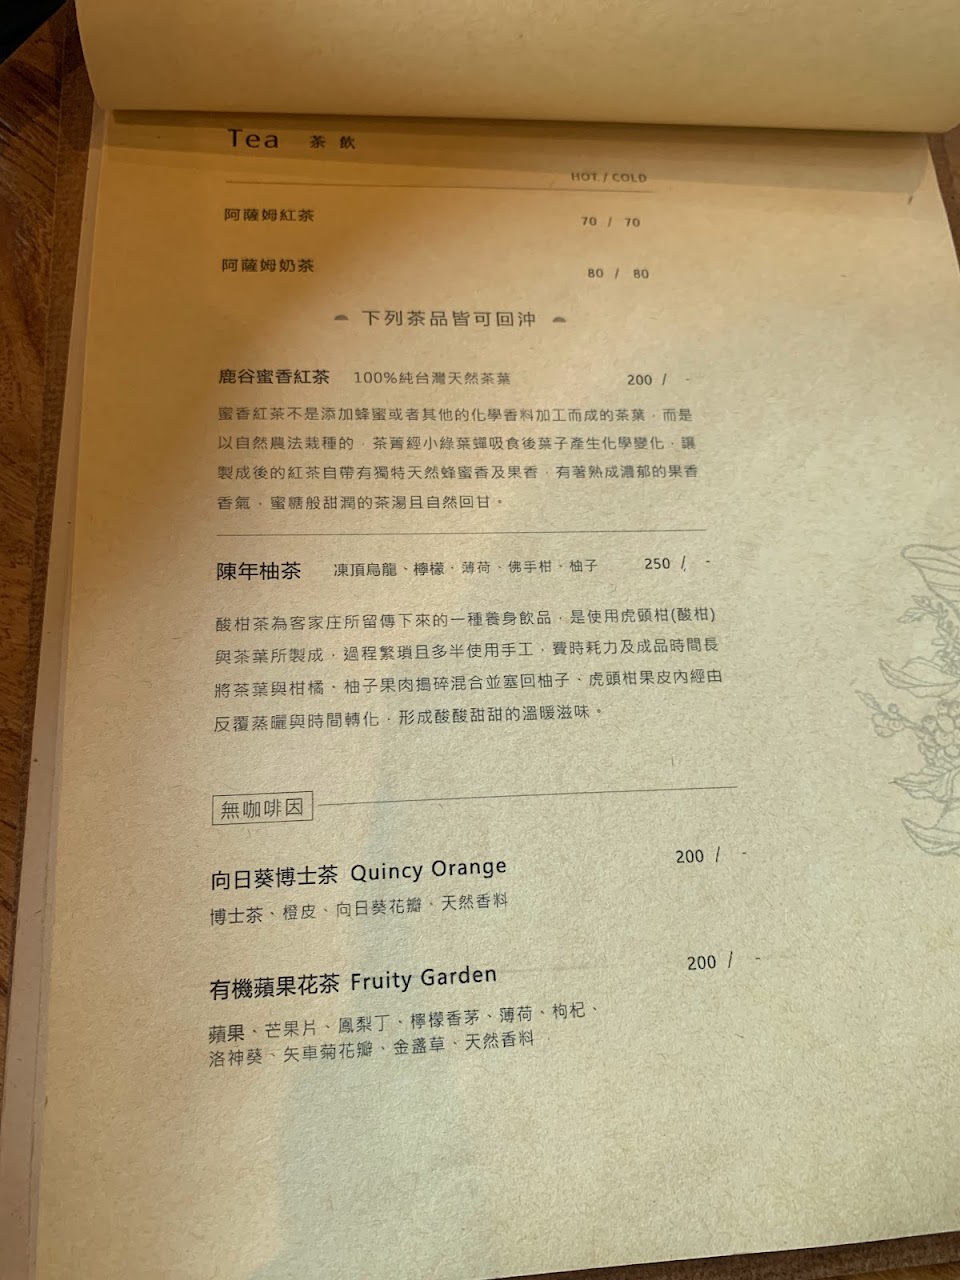 Tea 茶 飲
HOT / COLD
阿薩姆紅茶 70 / 70
阿薩姆奶茶 80 / 80
下列茶品皆可回沖
鹿谷蜜香紅茶 100%純台灣天然茶葉 200 / -
蜜香紅茶不是添加蜂蜜或者其他的化學香料加工而成的茶葉，而是
以自然農法栽種的，茶菁經小綠葉蟬吸食後葉子產生化學變化，讓
製成後的紅茶自帶有獨特天然蜂蜜香及果香，有著熟成濃郁的果香
香氣，蜜糖般甜潤的茶湯且自然回甘。
陳年柚茶 凍頂烏龍、檸檬、薄荷、佛手柑、柚子 250 / -
酸柑茶為客家庄所留傳下來的一種養身飲品，是使用虎頭柑(酸柑)
與茶葉所製成，過程繁瑣且多半使用手工，費時耗力及成品時間長
將茶葉與柑橘、柚子果肉搗碎混合並塞回柚子、虎頭柑果皮內經由
反覆蒸曬與時間轉化，形成酸酸甜甜的溫暖滋味。
無咖啡因
向日葵博士茶 Quincy Orange 200 / -
博士茶、橙皮、向日葵花瓣、天然香料
有機蘋果花茶 Fruity Garden 200 / -
蘋果、芒果片、鳳梨丁、檸檬香茅、薄荷、枸杞、
洛神葵、矢車菊花瓣、金盞草、天然香料